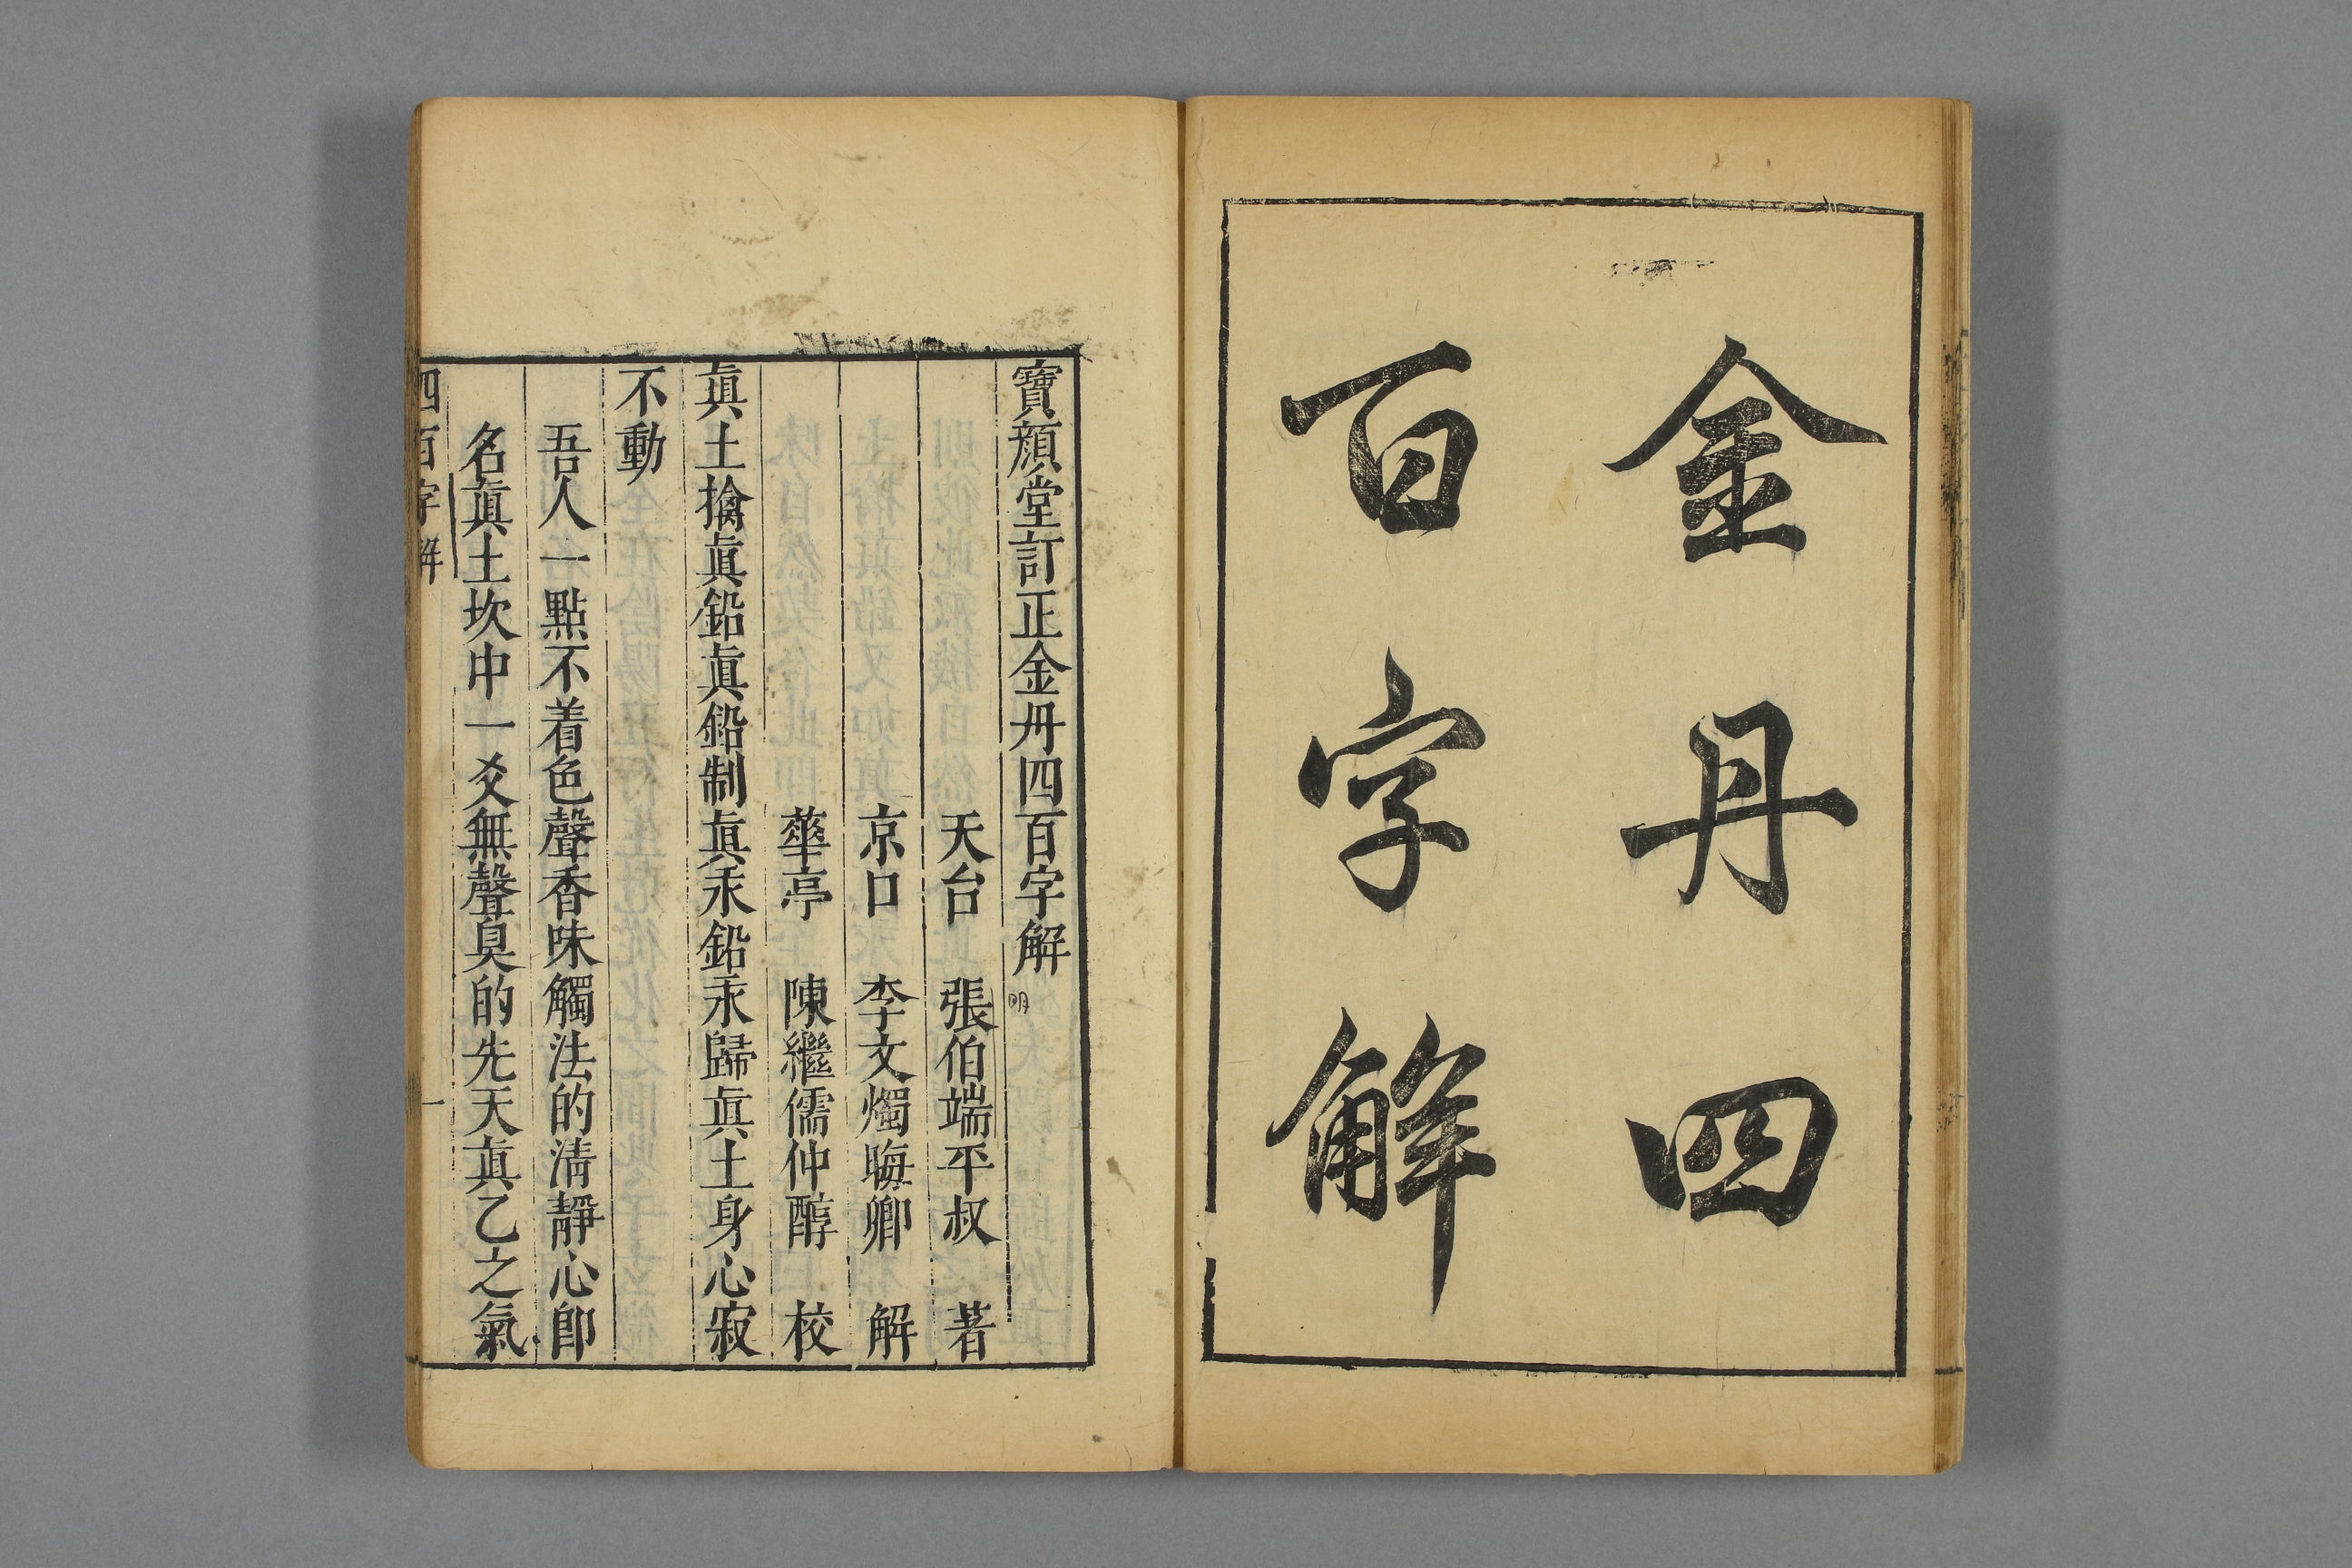 金丹四
百字解
寶顏堂訂正金丹四百字解
明
天台 張伯端平叔 著
京口 李文燭晦卿 解
華亭 陳繼儒仲醇 校
眞土擒眞鉛眞鉛制眞汞鉛汞歸眞土身心寂
不動
吾人一點不着色聲香味觸法的淸靜心卽
名眞土坎中一爻無聲臭的先天眞乙之氣
四百字解
一